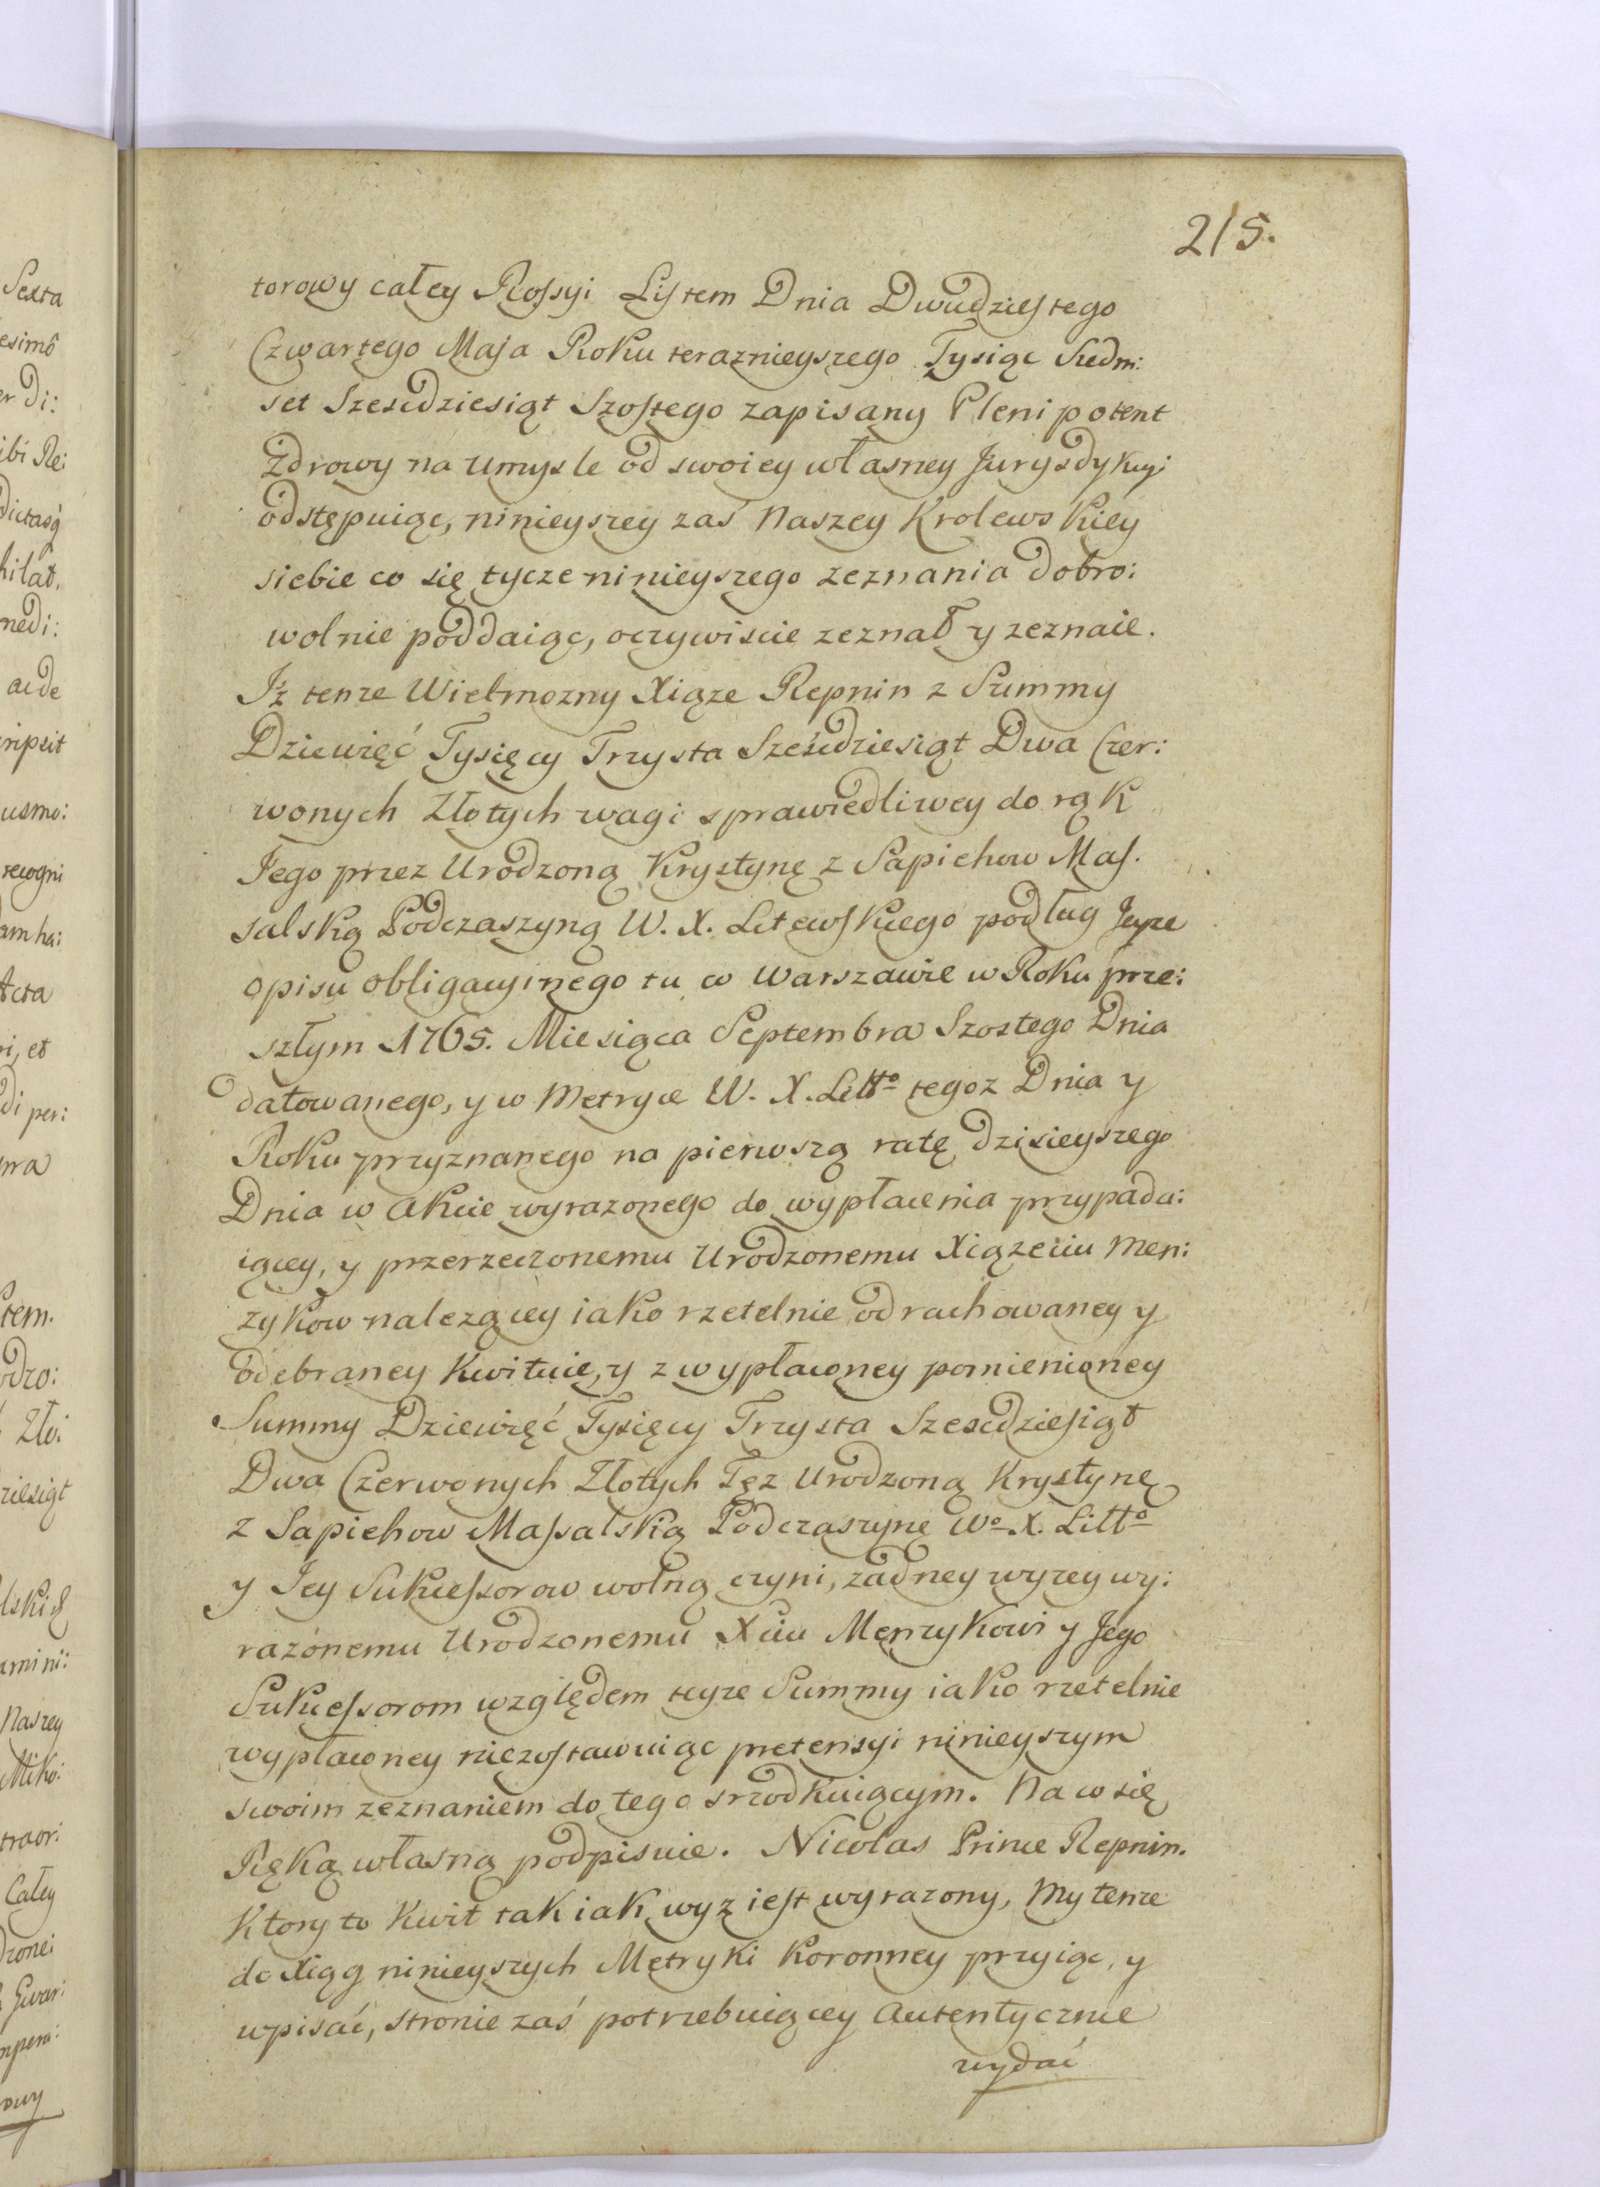 215.
Sexta
torowy całey Rossyi Listem Dnia Dwudziestego
esimô
Czwartego Maja Roku teraznieyszego Tysiąc Siedm:
er di:
set Szescdziesiąt Szostego zapisany Plenipotent
ibi Re:
Zdrowy na Umysle od swoiey własney Jurysdykcyi
odstępuiąc, ninieyszey zaś Naszey Krolewskiey
hilat.
siebie co się tycze ninieyszego zeznania dobro:
nedi:
wolnie poddaiąc, oczywiscie zeznał y zeznaie.
ac de
Iż tenze Wielmozny Xiąze Repnin z Summy
ripsit
Dziewięć Tysięcy Trzysta Sześcdziesiąt Dwa Czer:
usmo:
wonych Złotych wagi sprawiedliwey do rąk
recogni
Jego przez Urodzoną Krystynę z Sapiehow Mas.
am ha:
salską Podczaszyną W. X. Litewskiego podług Jeyze
Acta
opisu obligacyinego tu w Warszawie w Roku prze:
ri, et
szłym 1765. Miesiąca Septembra Szostego Dnia
di per:
datowanego, y w Metryce W. X. Litto tegoz Dnia y
Roku przyznanego na pierwszą ratę dzisieyszego
Dnia w Akcie wyrazonego do wypłacenia przypada:
iącey, y przerzeczonemu Urodzonemu Xiązeciu Men:
tem.
zykow nalezącey iako rzetelnie odrachowaney y
odzo:
odebraney kwituie, y z wypłaconey pomienioney
Zło:
Summy Dziewięć Tysięcy Trzysta Szescdziesiąt
ziesiąt
Dwa Czerwonych Złotych Tęz Urodzoną Krystynę
z Sapiehow Massalską Podczaszynę Wo X. Litto
lskich
y Jey Sukcessorow wolną czyni, zadney wyzey wy:
amini:
razonemu Urodzonemu Xciu Menzykowi y Jego
Naszey
Sukcessorom względem teyze Summy iako rzetelnie
Miko:
wypłaconey niezostawuiąc pretensyi ninieyszym
traor:
swoim zeznaniem do tego srzodkuiącym. Na co się
Całey
Ręką własną podpisuie. Nicolas Prince Repnin.
dzone:
Ktory to Kwit tak iak wyz iest wyrazony, My tenze
Gwar:
do Xiąg ninieyszych Metryki Koronney przyiąc, y
wpisać, stronie zaś potrzebuiącey Autentycznie
owy
wydać